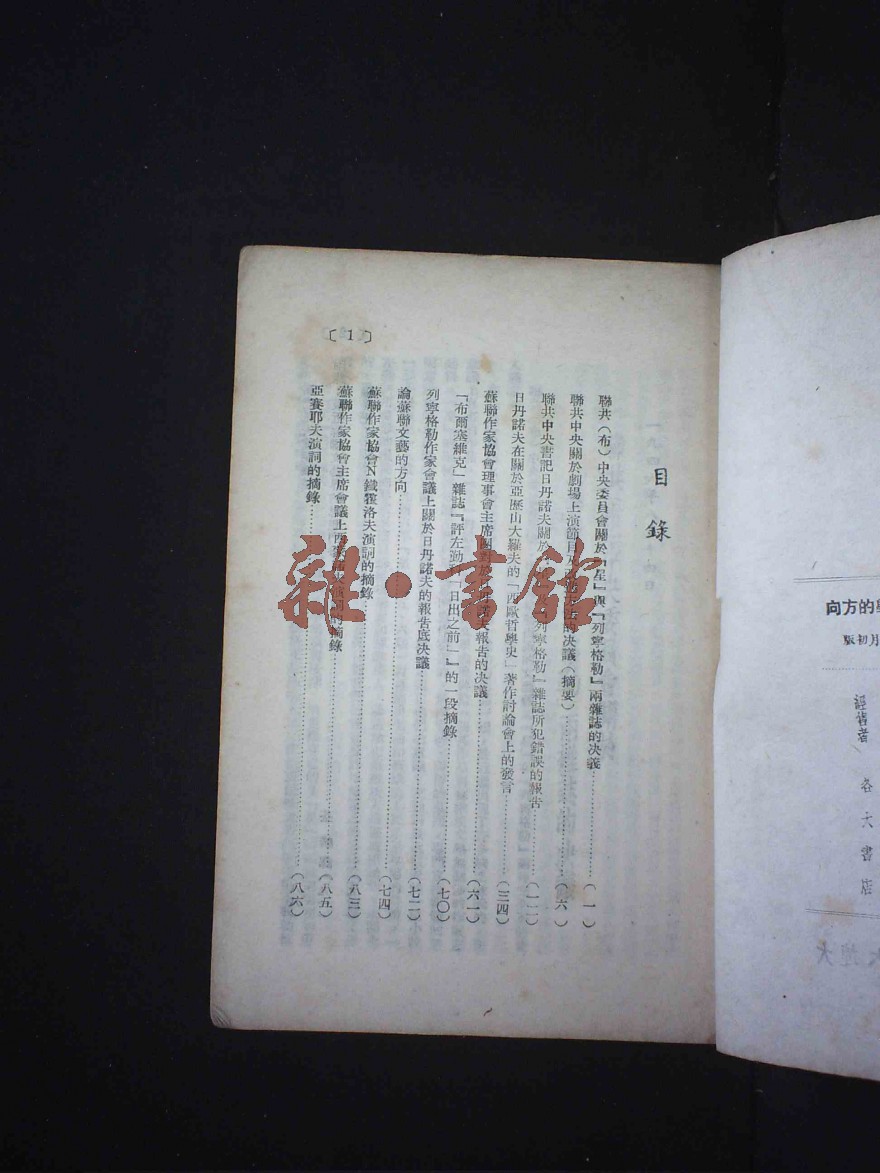 目錄
聯共（布）中央委員會關於『星』與『列寧格勒』兩雜誌的决議……（一）
聯共中央關於劇塲上演節目 的决議（摘要）……（六）
聯共中央書記日丹諾夫關於 列寧格勒』雜誌所犯錯誤的報告……（一二）
日丹諾夫在關於亞歷山大羅夫的「西歐哲學史」著作討論會上的發言……（三四）
蘇聯作家協會理事會主席團對於日丹諾夫報告的决議……（六一）
「布爾塞維克」雜誌『評左勤科「日出之前」』的一段摘錄……（七〇）
列寧格勒作家會議上關於日丹諾夫的報告底决議……（七二）
論蘇聯文藝的方向……（七四）
蘇聯作家協會N鐵霍洛夫演詞的摘錄……（八三）
蘇聯作家協會主席會議上 演詞的摘錄……（八五）
亞賽耶夫演詞的摘錄……（八六）
〔1〕
的方向
月初版
經售者 各大書店
大連
雜·書館